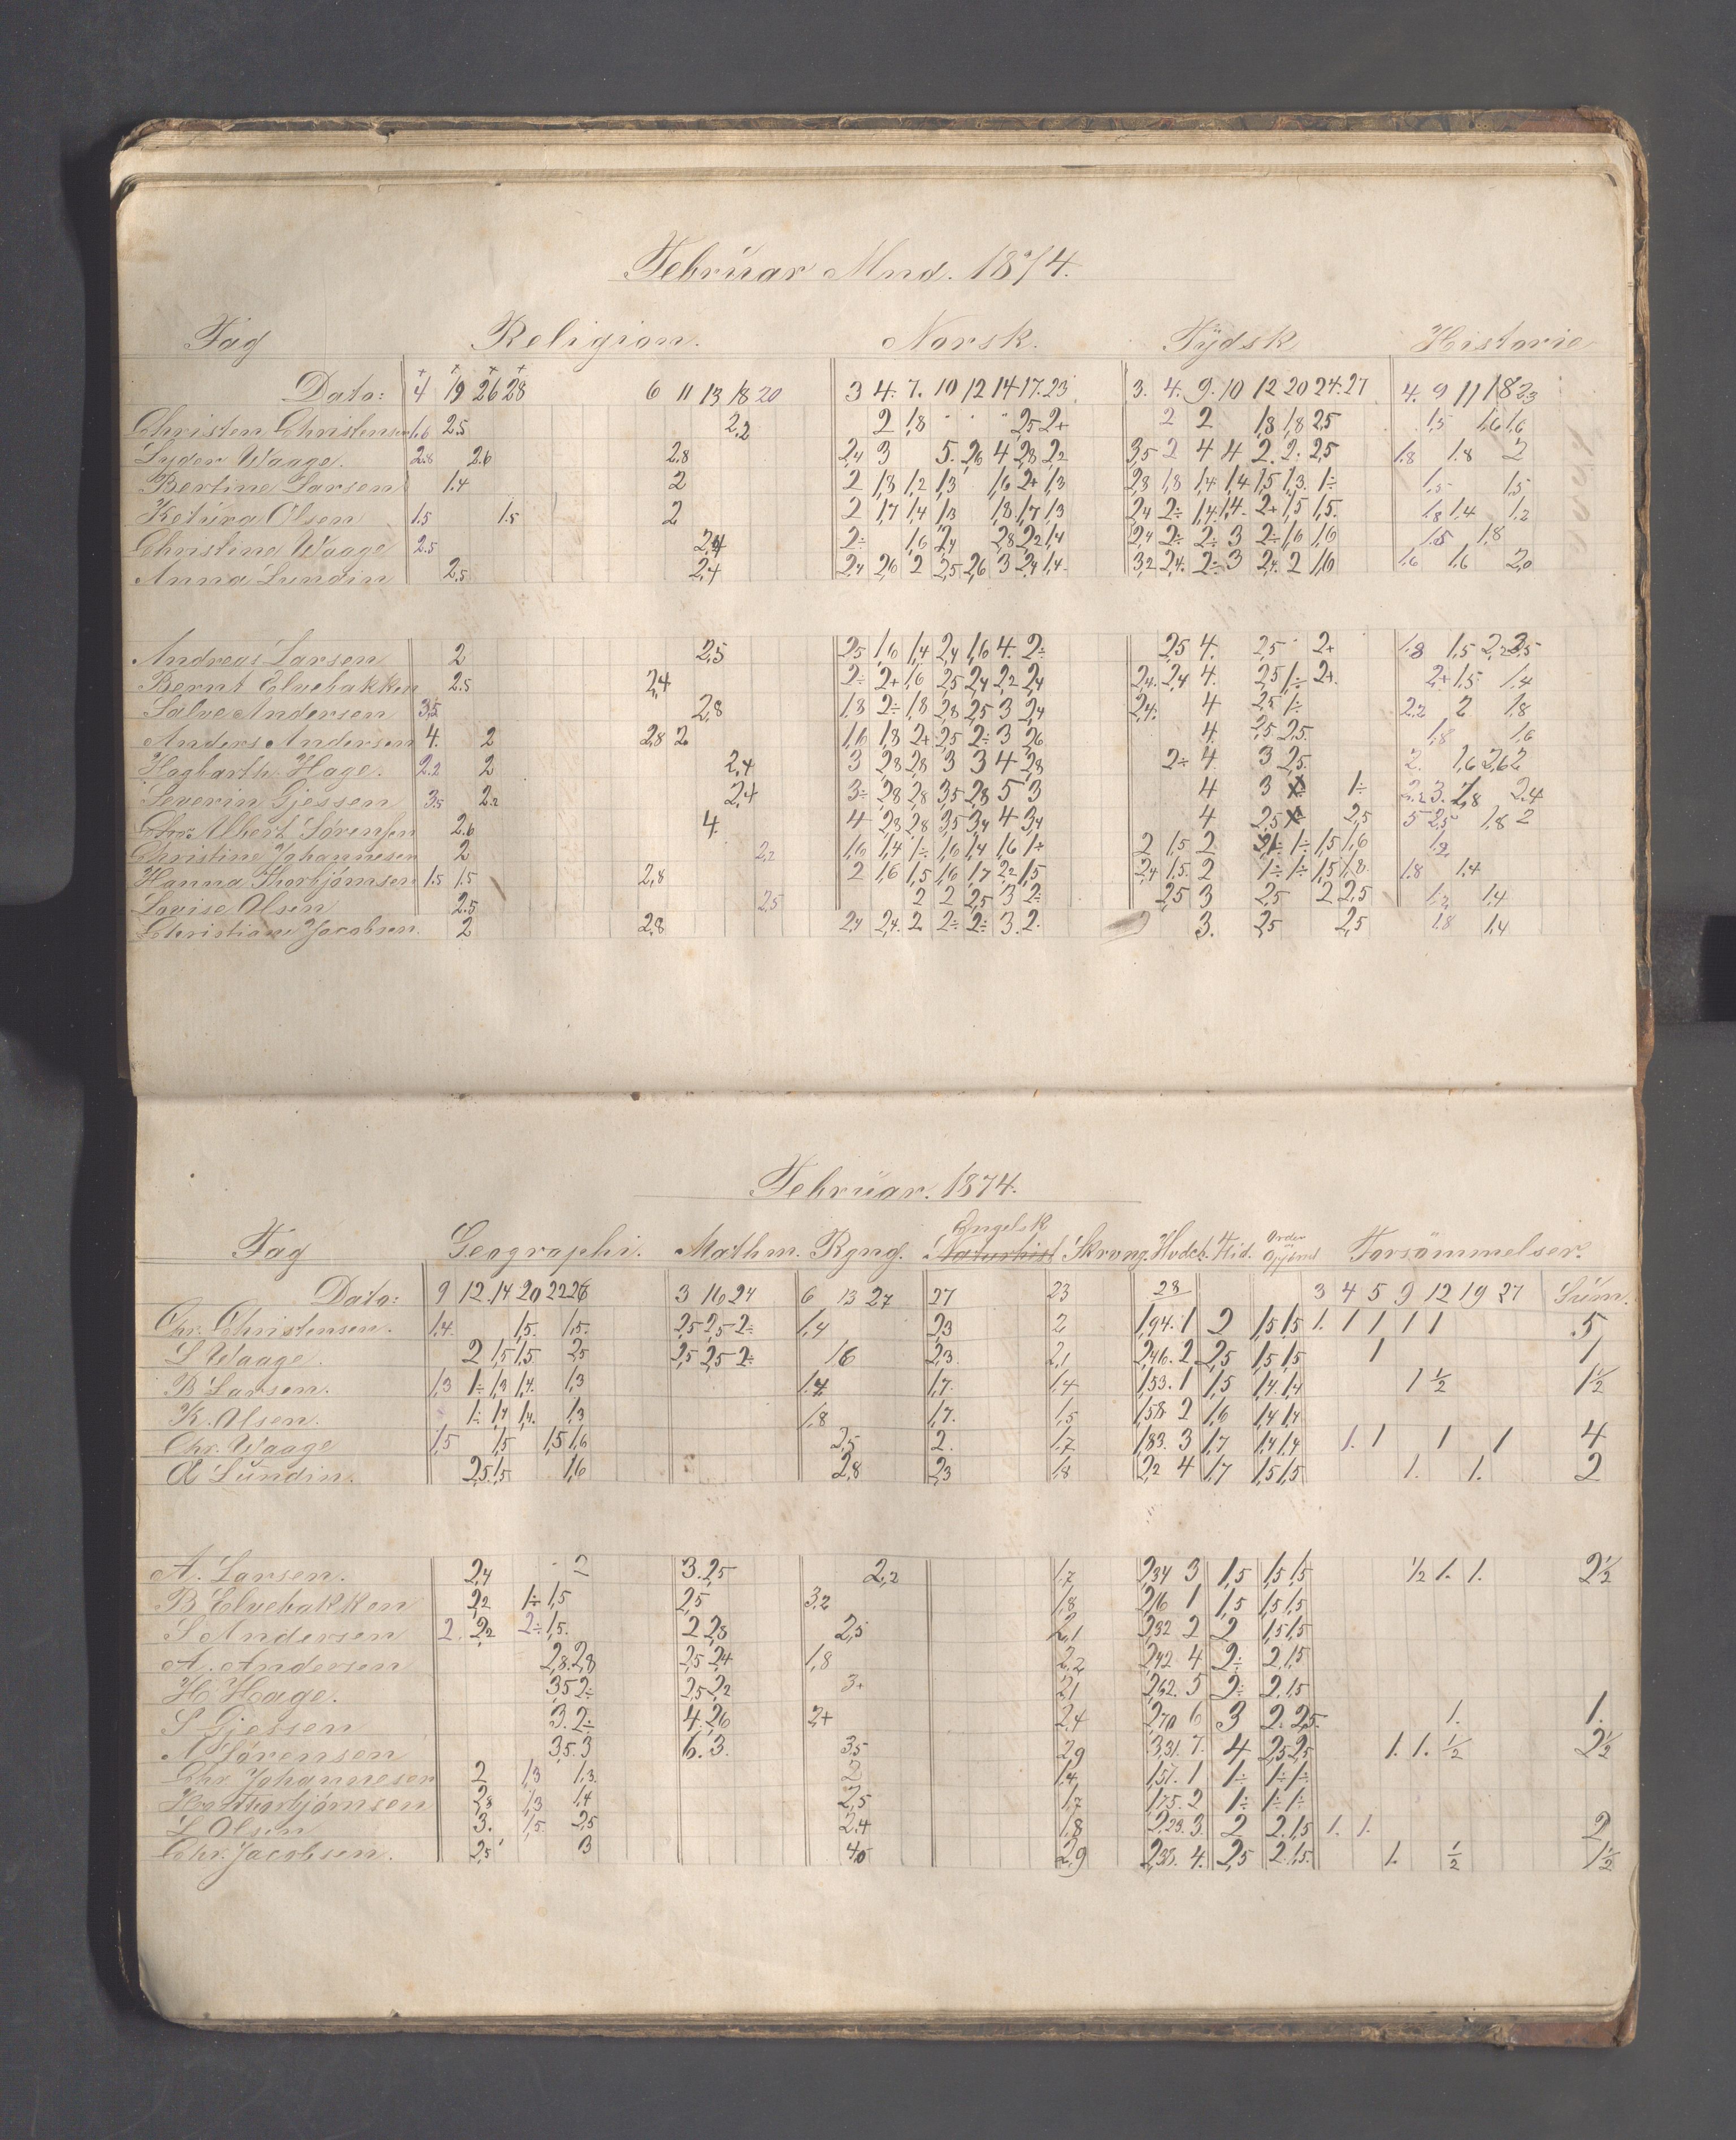 Februar Mnd. 1874.
Fag Religion. Norsk. Tydsk Historie
Dato: 4 19 26 28 6 11 13 18 20 3 4. 7. 10 12 14 17. 23 3. 4. 9. 10 12 20 24. 27 4. 9 11 18 23
Christen Christensen 1,6 2,5 2,2 2 1,8 2,5 2+ 2 2 1,8 1,8 2,5 1,5 1,6 1,6
Lyder Waage. 2,8 2,6 2,8 2,4 3 5. 2,6 4 2,8 2,2 3,5 2 4 4 2. 2. 2,5 1,8 1,8 2
Bertine Larsen 1,4 2 2 1,8 1,2 1,3 1,6 2+ 1,3 2,8 1,8 1,4 1,4 1,5 1,3. 1÷ 1,5 1,5
Ketura Olsen 1,5 1,5 2 2 1,7 1,4 1,3 1,8 1,7 1,3 2,4 2÷ 1,4 1,4. 2+ 1,5 1,5. 1,8 1,4 1,2
Christine Waage 2,5 2,4 2÷ 1,6 2,4 2,8 2,2 1,4 2,4 2÷ 2÷ 3 2÷ 1,6 1,6 1,5 1,8
Anna Lundin 2,5 2,4 2,4 2,6 2 2,5 2,6 3 2,4 1,4. 3,2 2,4. 2÷ 3 2,4. 2 1,6 1,6 1,6 2,0
Andreas Larsen 2 2,5 2,5 1,6 1,4 2,4 1,6 4. 2÷ 2,5 4. 2,5 2+ 1,8 1,5 2,2 3,5
Bernt Elvebakken 2,5 2,4 2÷ 2+ 1,6 2,5 2,4 2,2 2,4 2,4. 2,4 4. 2,5 1÷ 2+. 2+ 1,5 1,4
Salve Andersen 3,5 2,8 1,8 2÷ 1,8 2,8 2,5 3 2,4 2,4. 4 2,5 1÷ 2,2 2 1,8
Anders Andersen 4. 2 2,8 2 1,6 1,8 2+ 2,5 2÷ 3 2,6 4. 2,5 2,5. 1,8 1,6
Hagbarth Hage. 2,2 2 2,4 3 2,8 2,8 3 3 4 2,8 2÷ 4. 3 2,5. 2. 1,6 2,6 2
Severin Gjessen 3,5 2,2 2,4 3÷ 2,8 2,8 3,5 2,8 5 3 4 3 1÷ 2,2 3. 2,8 2,4
Chr. Albert Sørensen 2,6 4. 4 2,8 2,8 3,5 3,4 4 3,4 4 2,5 2,5 5 2,5 1,8 2
Christine Johannesen 2 2,2 1,6 1,4 1÷ 1,6 1,4 1,6 1+ 2 1,5 2 1÷ 1÷ 1,5 1,6 1,2
Hanna Thorbjørnsen 1,5 1,5 2,8 2 1,6 1,5 1,6 1,7 2,2 1,5 2,4 1,5. 2 1÷ 1÷ 1,5 1,8. 1,8 1,4
Lovise Olsen 2,5 2,5 2 2 2,5 3 2÷ 2,5 3 2,5 2 2,5 1,2 1,4
Christiane Jacobsen. 2 2,8 2,4 2,4. 2 2÷ 2÷ 3. 2. 3. 2,5 2,5 1,8 1,4
Februar. 1874.
Engelsk
Fag Geographi. Mathm. Rgng. Naturhist Skrvng. Hvdch. Flid. Orden Opførs Forsømmelser.
Dato: 9 12. 14 20 22 26 3 16 24 6 13 27 27 23 28 3 4 5 9 12 19 27 Sum.
Chr. Christensen. 1,4. 1,5. 1,5. 2,5 2,5 2÷ 1,4 2,3 2 1,94. 1 2 1,5 1,5 1. 1 1 1 1 5
L Waage. 2 1,5 1,5 2,5 2,5 2,5 2÷ 1,6 2,3. 2,1 2,46. 2. 2,5 1,5 1,5 1 1
B Larsen. 1,3 1÷ 1,3 1,4. 1,3 1,4 1,7. 1,4 1,53. 1 1,5 1,4. 1,4 1 ½ 1½
K. Olsen. 1÷ 1,4 1,4. 1,3 1,8 1,7. 1,5 1,58 2 1,6 1,4 1,4
Chr. Waage 1,5 1,5 1,5 1,6 2,5 2. 1,7 1,83. 3 1,7 1,4 1,4 1. 1 1 1 4
A Lundin. 2,5. 1,5 1,6 2,8 2,3 1,8 2,2 4 1,7 1,5 1,5 1. 1. 2
A. Larsen. 2,4 2 3. 2,5 2,2 1,7 2,34 3 1,5 1,5 1,5 ½ 1. 1. 2½
B Elvebakken 2,2 1÷ 1,5 2,5 3,2 1,8 2,6 1 1,5 1,5 1,5
S Andersen 2. 2,2 2÷ 1,5. 2 2,8 2,5 2,1 2,32 2 2 1,5 1,5
A. Andersen 2,8. 2,8 2,5 2,4 1,8 2,2 2,42 4 2÷ 2. 1,5
H. Hage. 3,5 2÷ 2,5 2,2 3+ 2,1 2,62. 5 2÷ 2. 1,5
S Gjessen 3. 2÷ 4. 2,6 2+ 2,4 2,70 6 3 2. 2,5. 1. 1.
A Sørensen 3,5. 3 6. 3. 3,5 2,9 3,31. 7. 4 2,5 2,5 1. 1. ½ 2½
Chr Johannesen 2 1,3 1,3. 2 1,4. 1,51. 1 1÷ 1÷ 1÷
H Thorbjørnsen 2,8 1,3 1,4 2,5 1,7 1,75. 2 1÷ 1÷ 1÷
L Olsen 3. 1,5. 2,5 2,4 1,8 2,23. 3. 2 2. 1,5 1. 1. 2
Chr. Jacobsen. 2,5 3 4,5 2,9 2,85. 4. 2,5 2. 1,5. 1. ½ 1½